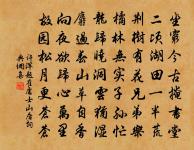 坐窮今古掩書堂
二頃湖田一半荒
荊樹有花兄弟樂
橘林無實子孫忙
龍歸曉洞雲猶濕
麝過春山草自香
向夜欲歸心萬里
故園松月更蒼蒼
許渾題崔處士山居詞
典網集